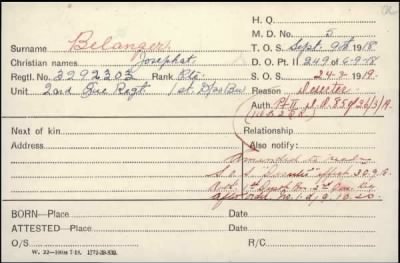 H. Q.
M. D. No. 5
Surname Belanger T. O. S. Sept. 9th 1918
Christian names Josephat. D. O. Pt. II 249 of 6-9-18
Regtl. No. 3292303 Rank Pte. S. O. S. 24-2-1919.
Unit 2nd Que Regt 1st D/os Bn Reason Deserter
Auth. Pt II D.O. 85 of 26/3/19
Next of kin Relationship
Address Also notify:
Amended to read—
S.O.S. "Deserter" effect 30.9.18
1st Depot Bn. 2nd Que. Reg
BORN—Place Date
ATTESTED—Place Date
O/S R/C.